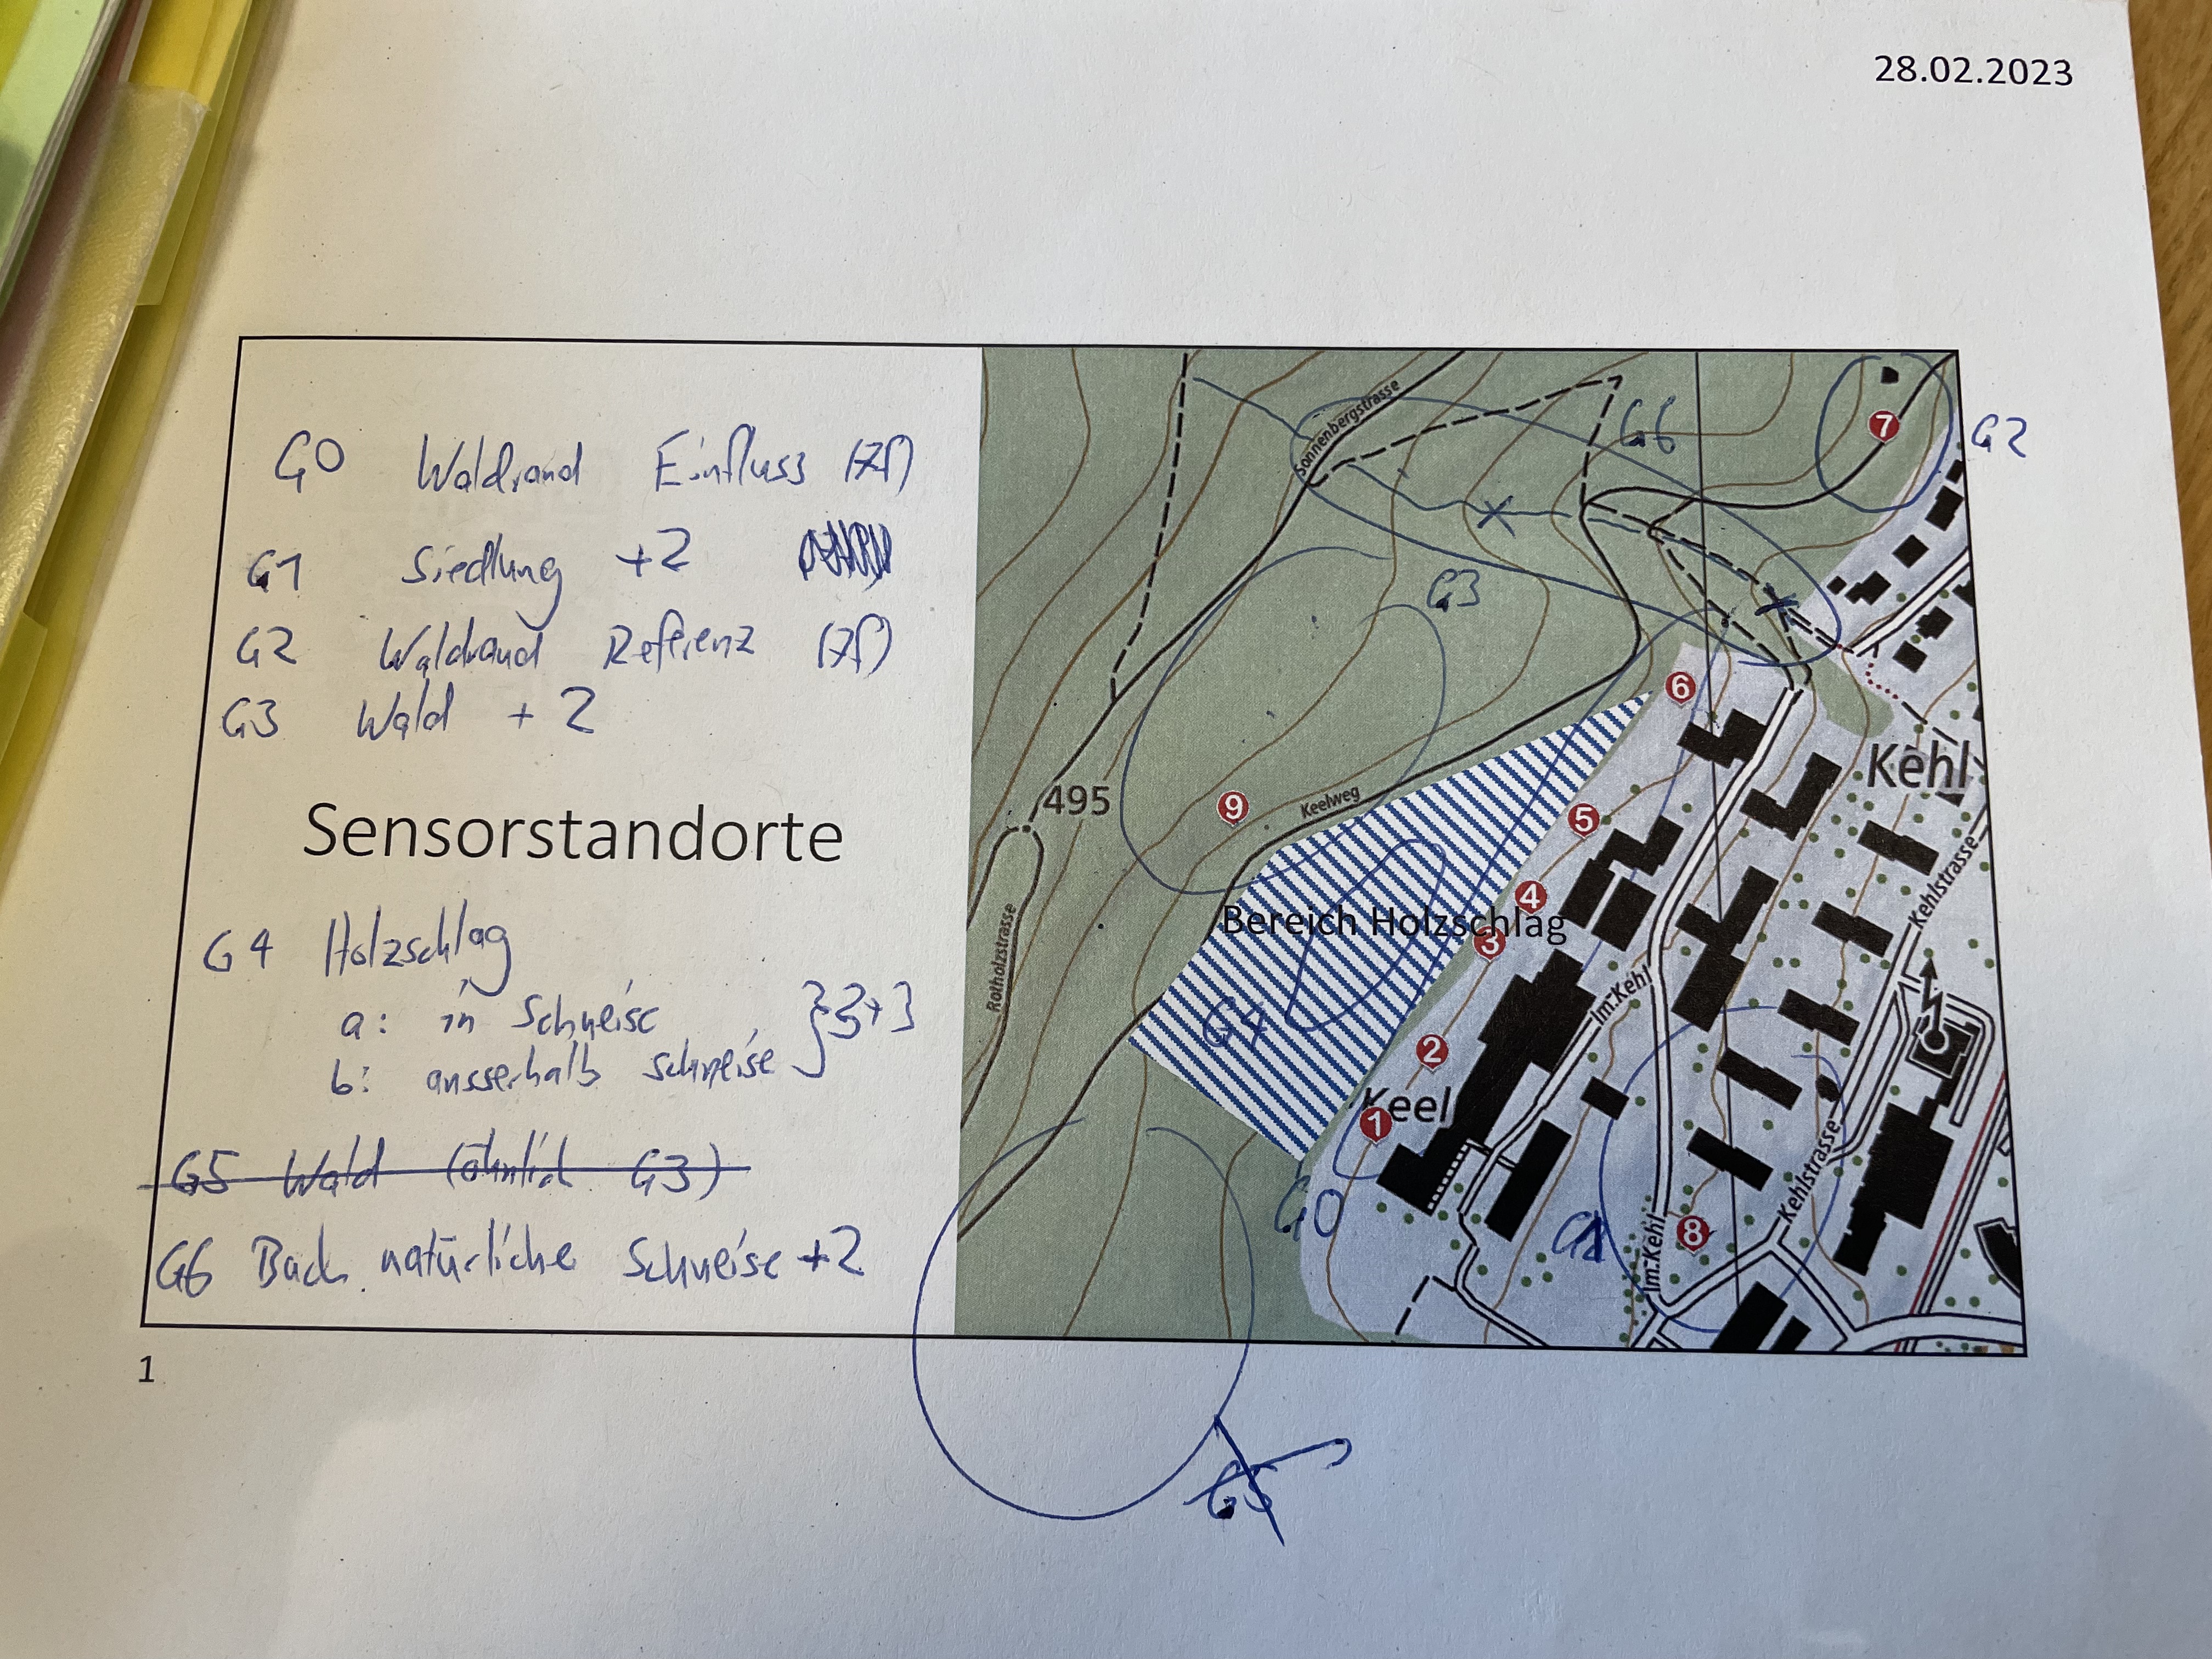 28.02.2023
G0 Waldrand Einfluss
G1 Siedlung +2
G2 Waldrand Referenz
G3 Wald + 2
Sensorstandorte
G4 Holzschlag
a: in Schneise
b: ausserhalb Schneise } 3+3
G5 Wald (ähnlich G3)
G6 Bach natürliche Schneise +2
1
Sonnenbergstrasse
G6
7
G2
G3
6
Kehl
495
9
Keelweg
5
4
Bereich Holzschlag
3
Rotholzstrasse
Kehlstrasse
Im Kehl
G4
2
Keel
1
G0
G1
8
Im Kehl
Kehlstrasse
G5